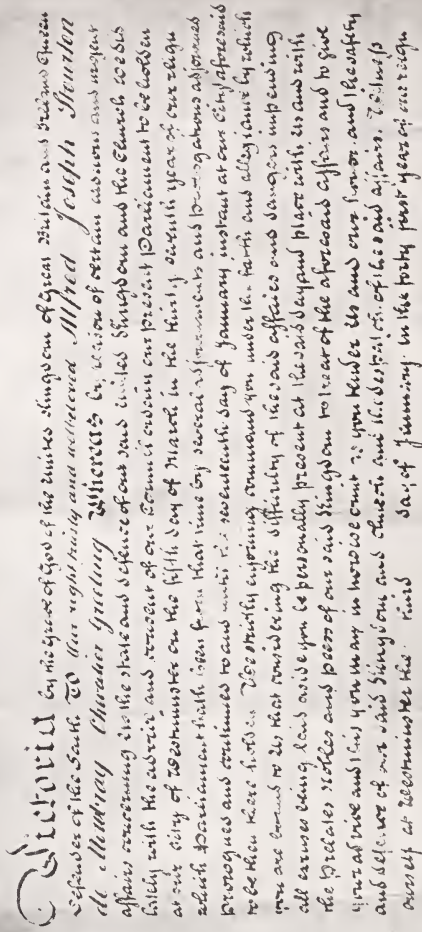 Victoria by the Grace of God of the United Kingdom of Great Britain and Ireland Queen
Defender of the Faith To Our right trusty and welbeloved Alfred Joseph Stourton
de Mowbray Chevalier Greeting Whereas by reason of certain arduous and urgent
affairs concerning Us the state and defence of our said United Kingdom and the Church We did
lately with the advice and consent of our Council ordain our present Parliament to be holden
at our City of Westminster on the fifth day of March in the thirty seventh year of our reign
which Parliament hath been from that time by several adjournments and prorogations adjourned
prorogued and continued to and until the seventeenth day of January instant at our City aforesaid
to be then there holden We strictly enjoining command you under the faith and allegiance by which
you are bound to Us that considering the difficulty of the said affairs and dangers impending
all excuses being laid aside you be personally present at the said day and place with Us and with
the Prelates Nobles and peers of our said Kingdom to treat of the aforesaid affairs and to give
your advice and this you may in nowise omit as you tender Us and our honor and the safety
and defence of our said Kingdom and Church and the despatch of the said affairs Witness
ourself at Westminster the third day of January in the forty first year of our reign